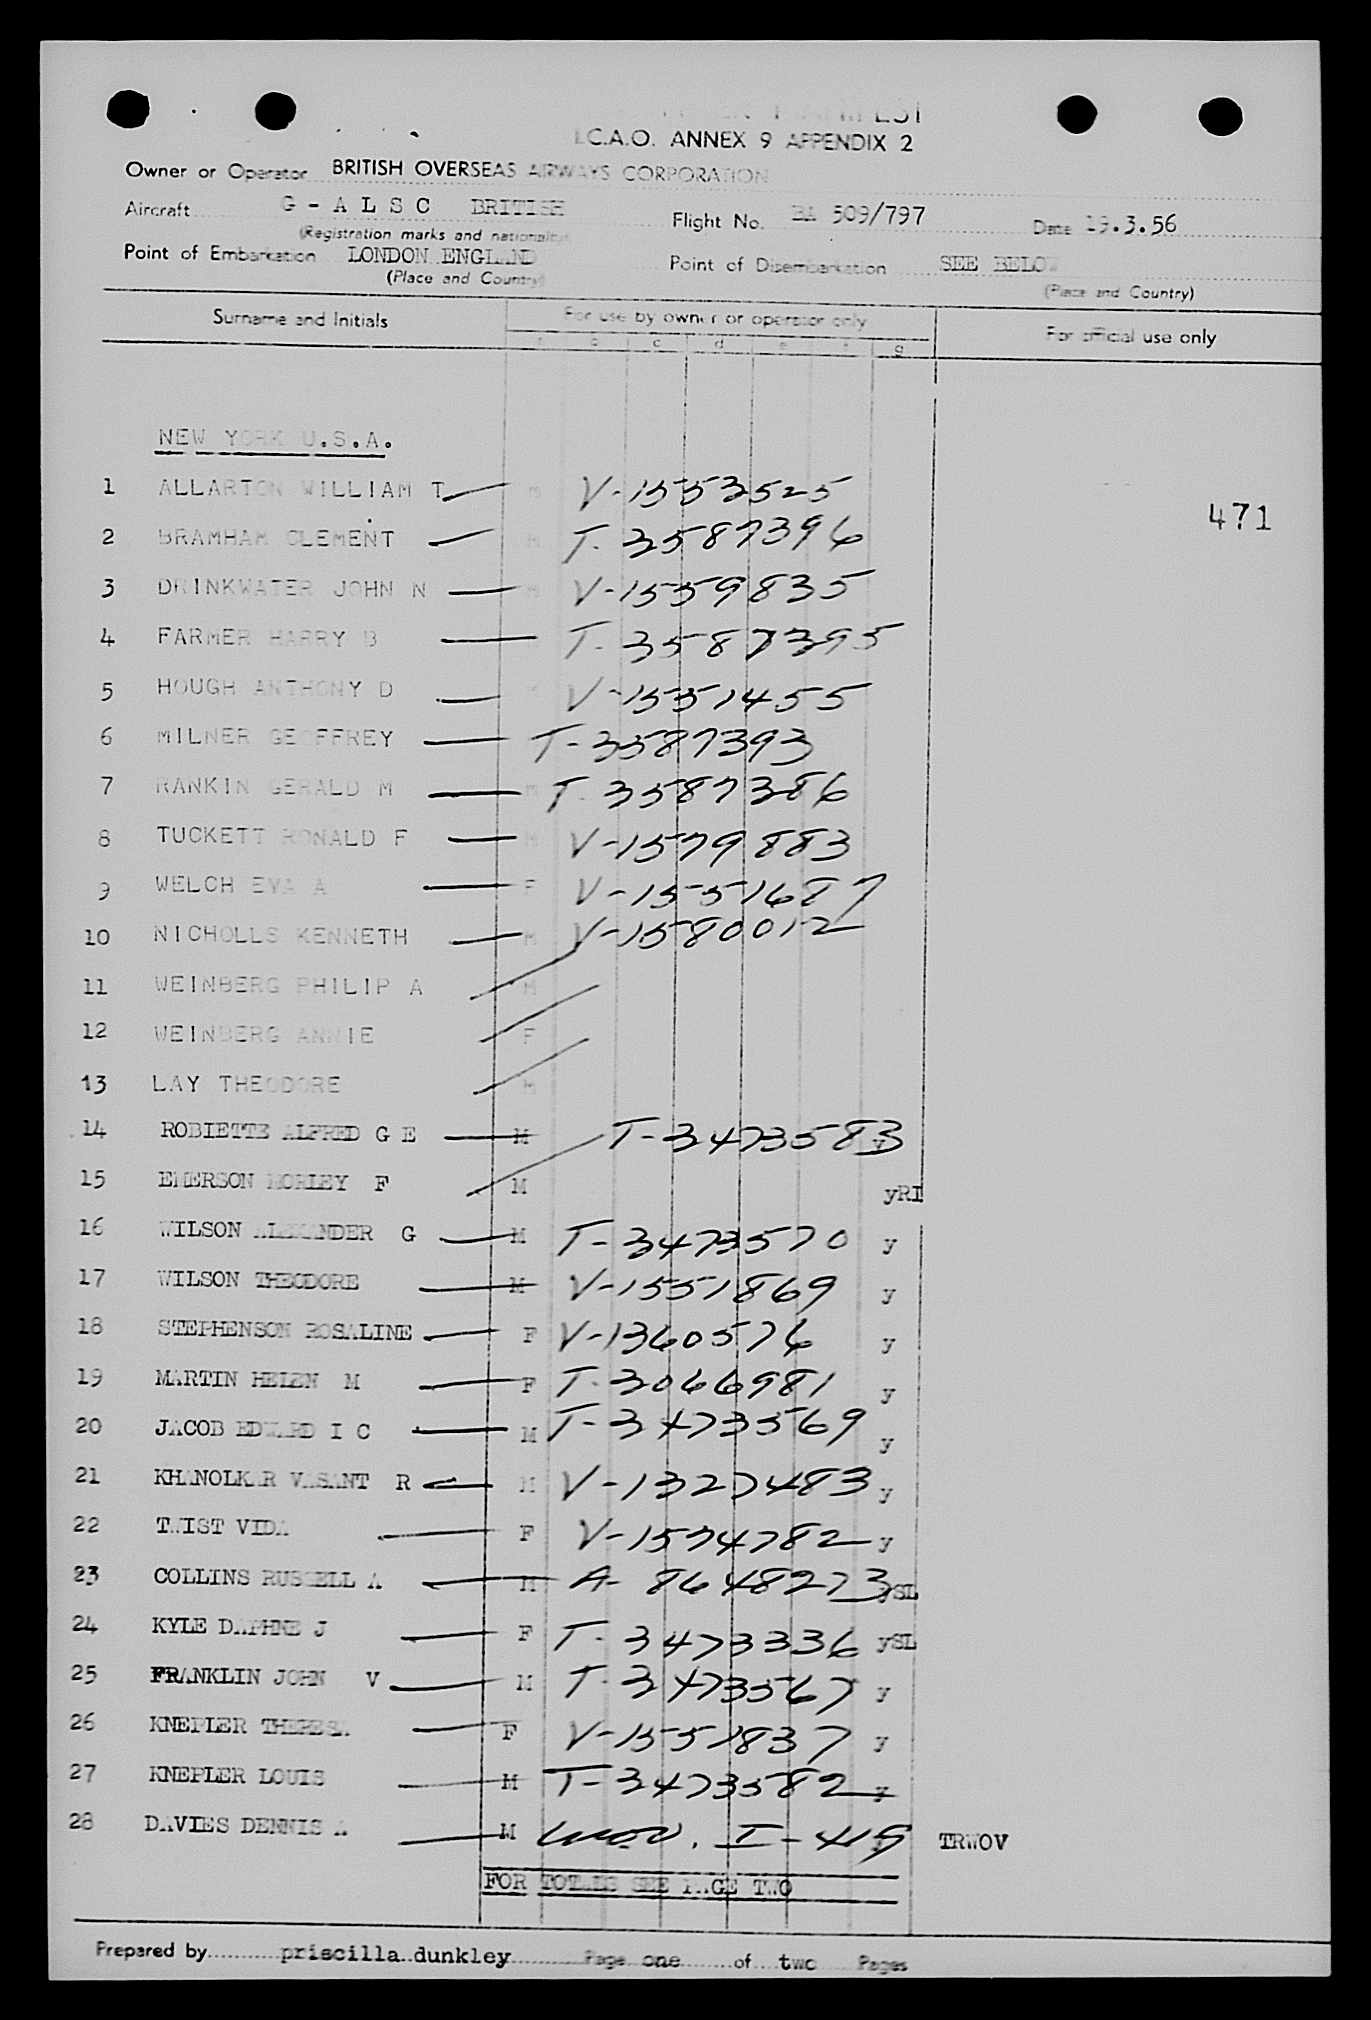 I.C.A.O. ANNEX 9 APPENDIX 2
Owner or Operator BRITISH OVERSEAS AIRWAYS CORPORATION
Aircraft G - A L S C BRITISH Flight No. BA 509/797 Date 19.3.56
(Registration marks and nationality)
Point of Embarkation LONDON ENGLAND Point of Disembarkation SEE BELOW
(Place and Country) (Place and Country)
Surname and Initials For use by owner or operator only For official use only
c d e f g
NEW YORK U.S.A.
1 ALLARTON WILLIAM T M V-1553525
471
2 BRAMHAM CLEMENT M T-3587396
3 DRINKWATER JOHN N M V-1559835
4 FARMER HARRY B T-3587395
5 HOUGH ANTHONY D V-1551455
6 MILNER GEOFFREY T-3587393
7 RANKIN GERALD M M T-3587386
8 TUCKETT RONALD F M V-1579883
9 WELCH EVA A F V-1551687
10 NICHOLLS KENNETH M V-1580012
11 WEINBERG PHILIP A M
12 WEINBERG ANNIE F
13 LAY THEODORE M
14 ROBIETTE ALFRED G E M T-3473583 y
15 EMERSON MORLEY F M yRI
16 WILSON ALEXANDER G M T-3473570 y
17 WILSON THEODORE M V-1551869 y
18 STEPHENSON ROSALINE F V-1360576 y
19 MARTIN HELEN M F T-3066981 y
20 JACOB EDWARD I C M T-3473569 y
21 KHANOLKAR VASANT R M V-1327483 y
22 TWIST VIDA F V-1574782 y
23 COLLINS RUSSELL A M A-8648273 ySL
24 KYLE DAPHNE J F T-3473336 ySL
25 FRANKLIN JOHN V M T-3473567 y
26 KNEPLER THERESA F V-1551837 y
27 KNEPLER LOUIS M T-3473582 y
28 DAVIES DENNIS A M I-419 TRWOV
FOR TOTALS SEE PAGE TWO
Prepared by priscilla dunkley Page one of two Pages